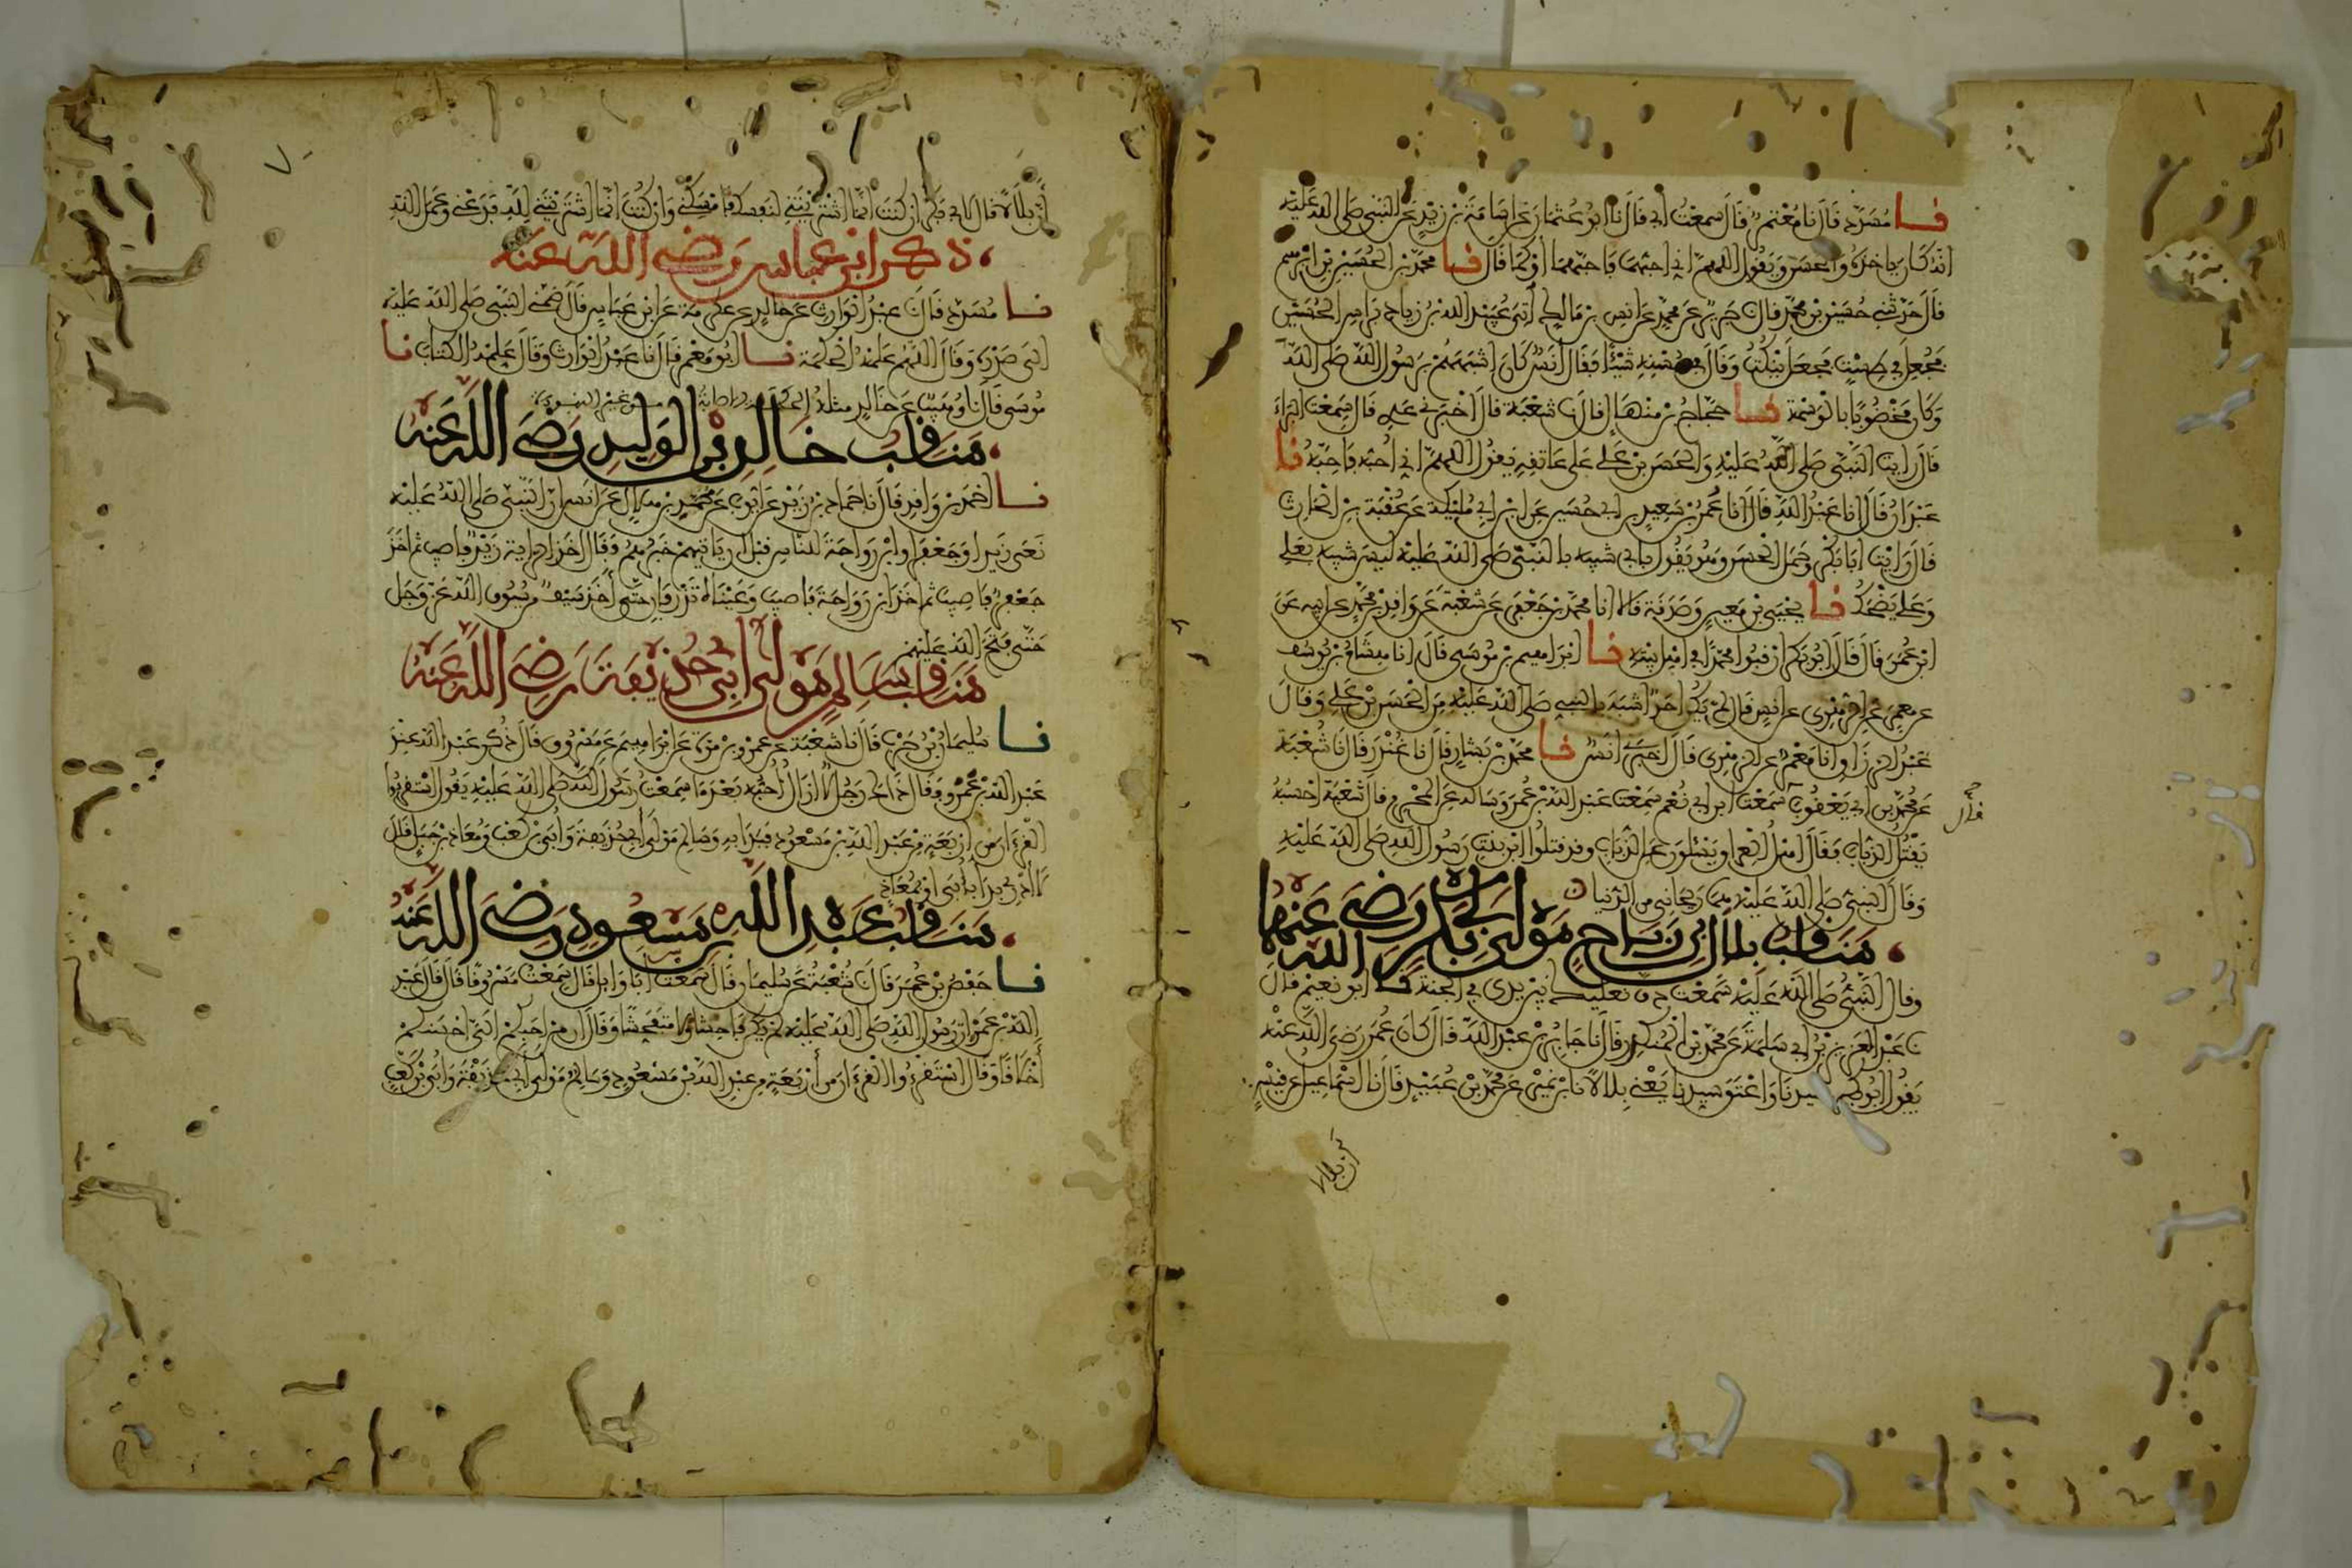 نا مسدد قال نا معتمر قال سمعت ابي قال نا ابو عثمان عن اسامة بن زيد عن النبي صلى الله عليه
انه كان ياخذه والحسن ويقول اللهم اني احبهما فاحبهما او كما قال نا محمد بن الحسين بن ابرهيم
قال حدثني حسين بن محمد قال نا جرير عن محمد عن انس بن مالك اتي عبيد الله بن زياد براس الحسين
فجعل في طست فجعل ينكت وقال في حسنه شيئا فقال انس كان اشبههم برسول الله صلى الله
وكان مخضوبا بالوسمة نا حجاج بن منهال قال نا شعبة قال اخبرني عدي قال سمعت البراء
قال رايت النبي صلى الله عليه والحسن بن علي على عاتقه يقول اللهم اني احبه فاحبه نا
عبدان قال انا عبد الله قال انا عمر بن سعيد بن ابي حسين عن ابن ابي مليكة عن عقبة بن الحارث
قال رايت ابا بكر وحمل الحسن وهو يقول بابي شبيه بالنبي صلى الله عليه ليس شبيه بعلي
وعلي يضحك نا يحيى بن معين وصدقة قالا انا محمد بن جعفر عن شعبة عن واقد بن محمد عن ابيه عن
ابن عمر قال قال ابو بكر ارقبوا محمدا في اهل بيته نا ابراهيم بن موسى قال انا هشام بن يوسف
عن معمر عن الزهري عن انس قال لم يكن احد اشبه بالنبي صلى الله عليه من الحسن بن علي وقال
عبد الرزاق انا معمر عن الزهري قال اخبرني انس نا محمد بن بشار قال نا غندر قال نا شعبة
عن محمد بن ابي يعقوب سمعت ابن ابي نعم سمعت عبد الله بن عمر وساله عن المحرم قال شعبة احسبه
قال
يقتل الذباب فقال اهل العراق يسئلون عن الذباب وقد قتلوا ابن بنت رسول الله صلى الله عليه
وقال النبي صلى الله عليه هما ريحانتي من الدنيا
مناقب بلال بن رباح مولى ابي بكر رضي الله عنهما
وقال النبي صلى الله عليه سمعت دف نعليك بين يدي في الجنة نا ابو نعيم قال
نا عبد العزيز بن ابي سلمة عن محمد بن المنكدر قال نا جابر بن عبد الله قال كان عمر رضي الله عنه
يقول ابو بكر سيدنا واعتق سيدنا يعني بلالا نا ابن نمير عن محمد بن عبيد قال نا اسماعيل عن قيس
ان بلالا
أن بلالا قال لابي بكر ان كنت انما اشتريتني لنفسك فامسكني وان كنت انما اشتريتني لله فدعني وعمل الله
ذكر ابن عباس رضي الله عنه
نا مسدد قال نا عبد الوارث عن خالد عن عكرمة عن ابن عباس قال ضمني النبي صلى الله عليه
الى صدره وقال اللهم علمه الحكمة نا ابو معمر قال نا عبد الوارث وقال علمه الكتاب نا
موسى قال نا وهيب عن خالد مثله الحكمة الاصابة في غير النبوة
مناقب خالد بن الوليد رضي الله عنه
نا احمد بن واقد قال نا حماد بن زيد عن ايوب عن حميد بن هلال عن انس ان النبي صلى الله عليه
نعى زيدا وجعفرا وابن رواحة للناس قبل ان ياتيهم خبرهم وقال اخذ الراية زيد فاصيب ثم اخذ
جعفر فاصيب ثم اخذ ابن رواحة فاصيب وعيناه تذرفان حتى أخذ سيف من سيوف الله عز وجل
حتى فتح الله عليهم
مناقب سالم مولى ابي حذيفة رضي الله عنه
نا سليمان بن حرب قال نا شعبة عن عمرو بن مرة عن ابراهيم عن مسروق قال ذكر عبد الله عند
عبد الله بن عمرو فقال ذاك رجل لا ازال أحبه بعد ما سمعت رسول الله صلى الله عليه يقول استقرئوا
القرءان من اربعة من عبد الله بن مسعود فبدا به وسالم مولى أبي حذيفة وأبي بن كعب ومعاذ بن جبل قال
لا أدري بدا بأبي او بمعاذ
مناقب عبد الله بن مسعود رضي الله عنه
نا حفص بن عمر قال نا شعبة عن سليمان قال سمعت أبا وايل قال سمعت مسروقا قال قال عبد
الله بن عمرو ان رسول الله صلى الله عليه لم يكن فاحشا ولا متفحشا وقال ان من احبكم الي احسنكم
أخلاقا وقال استقرئوا القرءان من أربعة من عبد الله بن مسعود وسالم مولى أبي حذيفة وأبي بن كعب